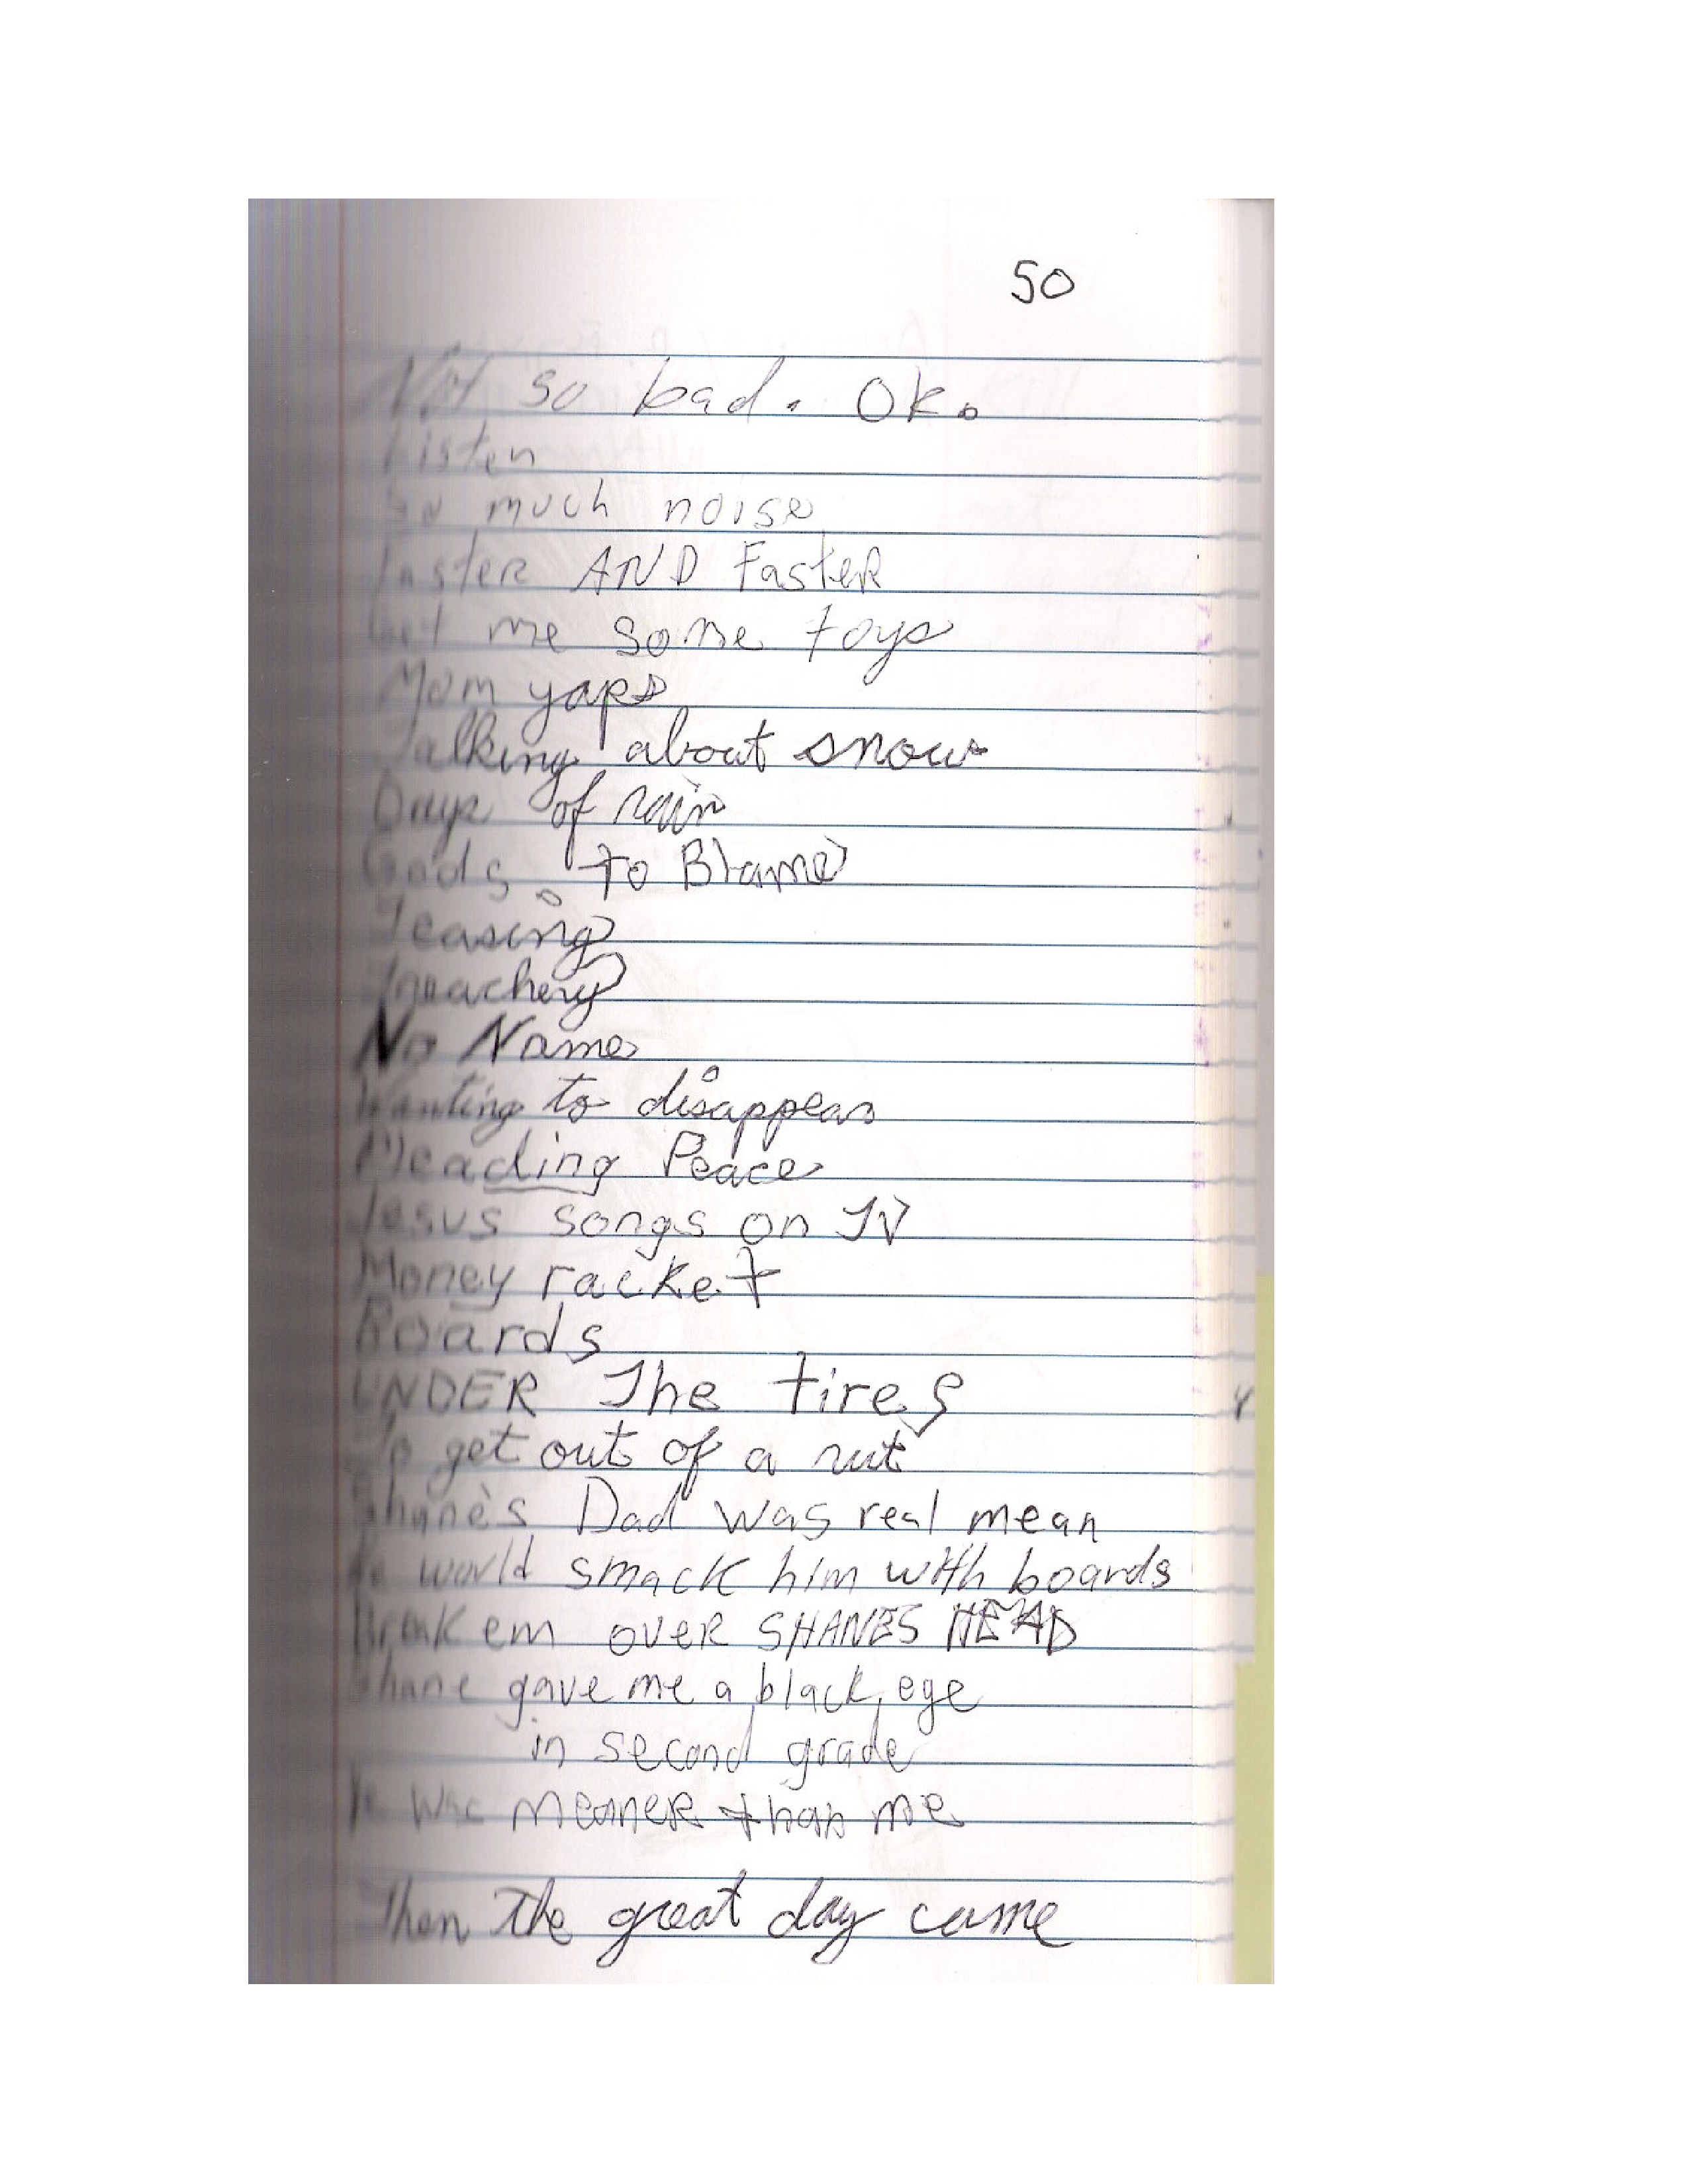 50
Not so bad. Ok.
Listen
So much noise
Faster AND Faster
Get me some toys
Mom yaps
Talking about snow
Days of rain
Gods to Blame
Teasing
Treachery
No Name
Wanting to disappear
Pleading Peace
Jesus songs on TV
Money racket
Boards
UNDER The tires
To get out of a rut
Shane's Dad was real mean
He would smack him with boards
Break em OVER SHANES HEAD
Shane gave me a black eye
in second grade
He was meaner than me
Then the great day came